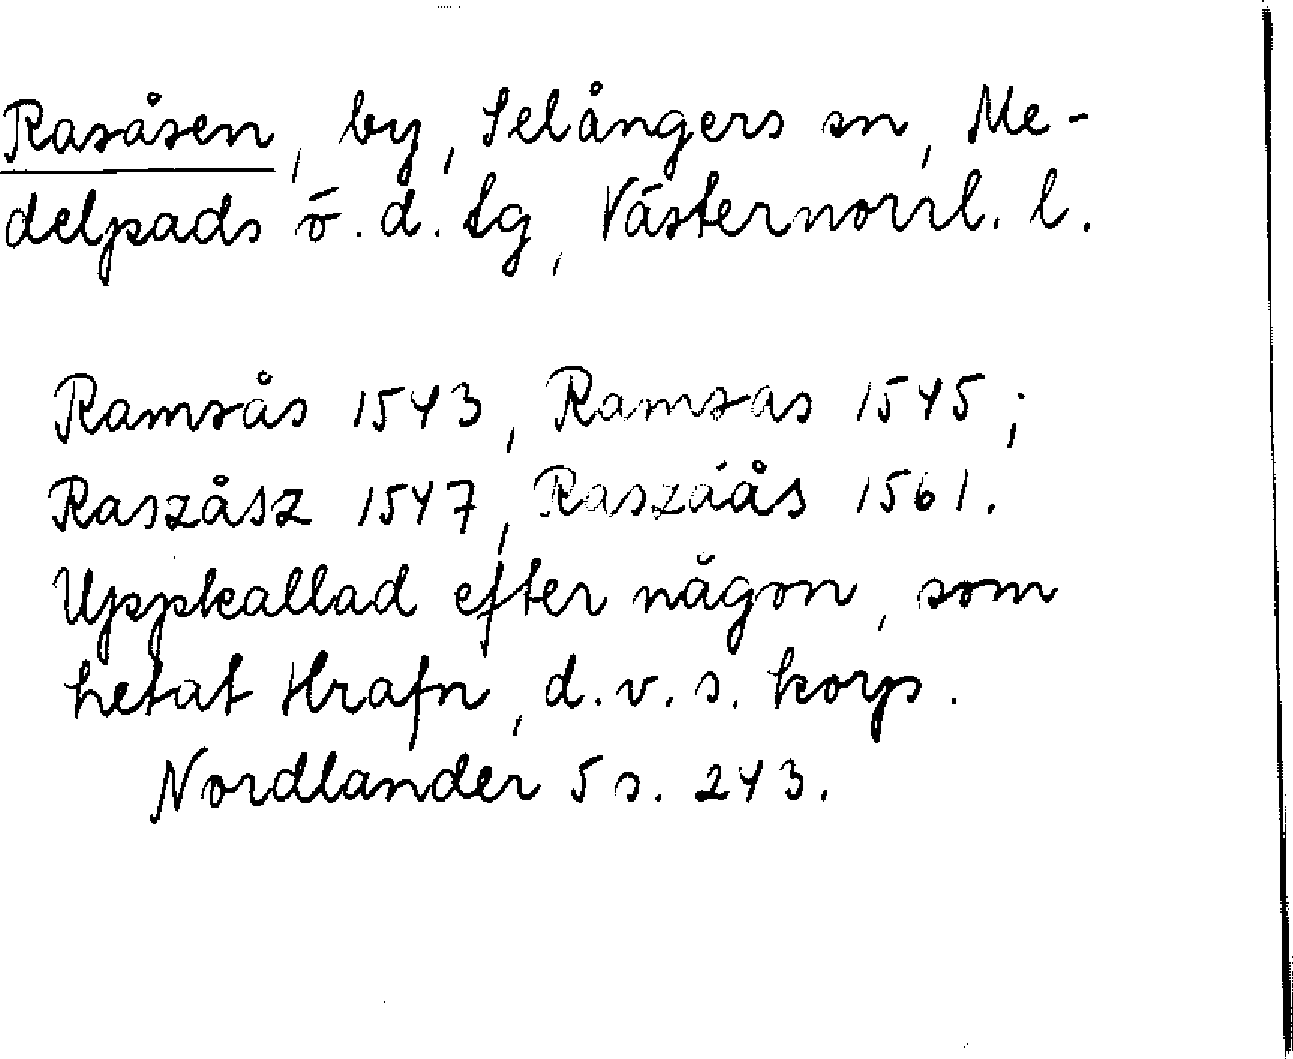 Rasåsen, by, Selångers sn, Me-
delpads ö. d. tg, Västernorrl. l.
Ramsås 1543, Ramsas 1545;
Raszåsz 1547, Raszáås 1561.
Uppkallad efter någon, som
hetat Hrafn, d. v. s. korp.
Nordlander 5 s. 243.